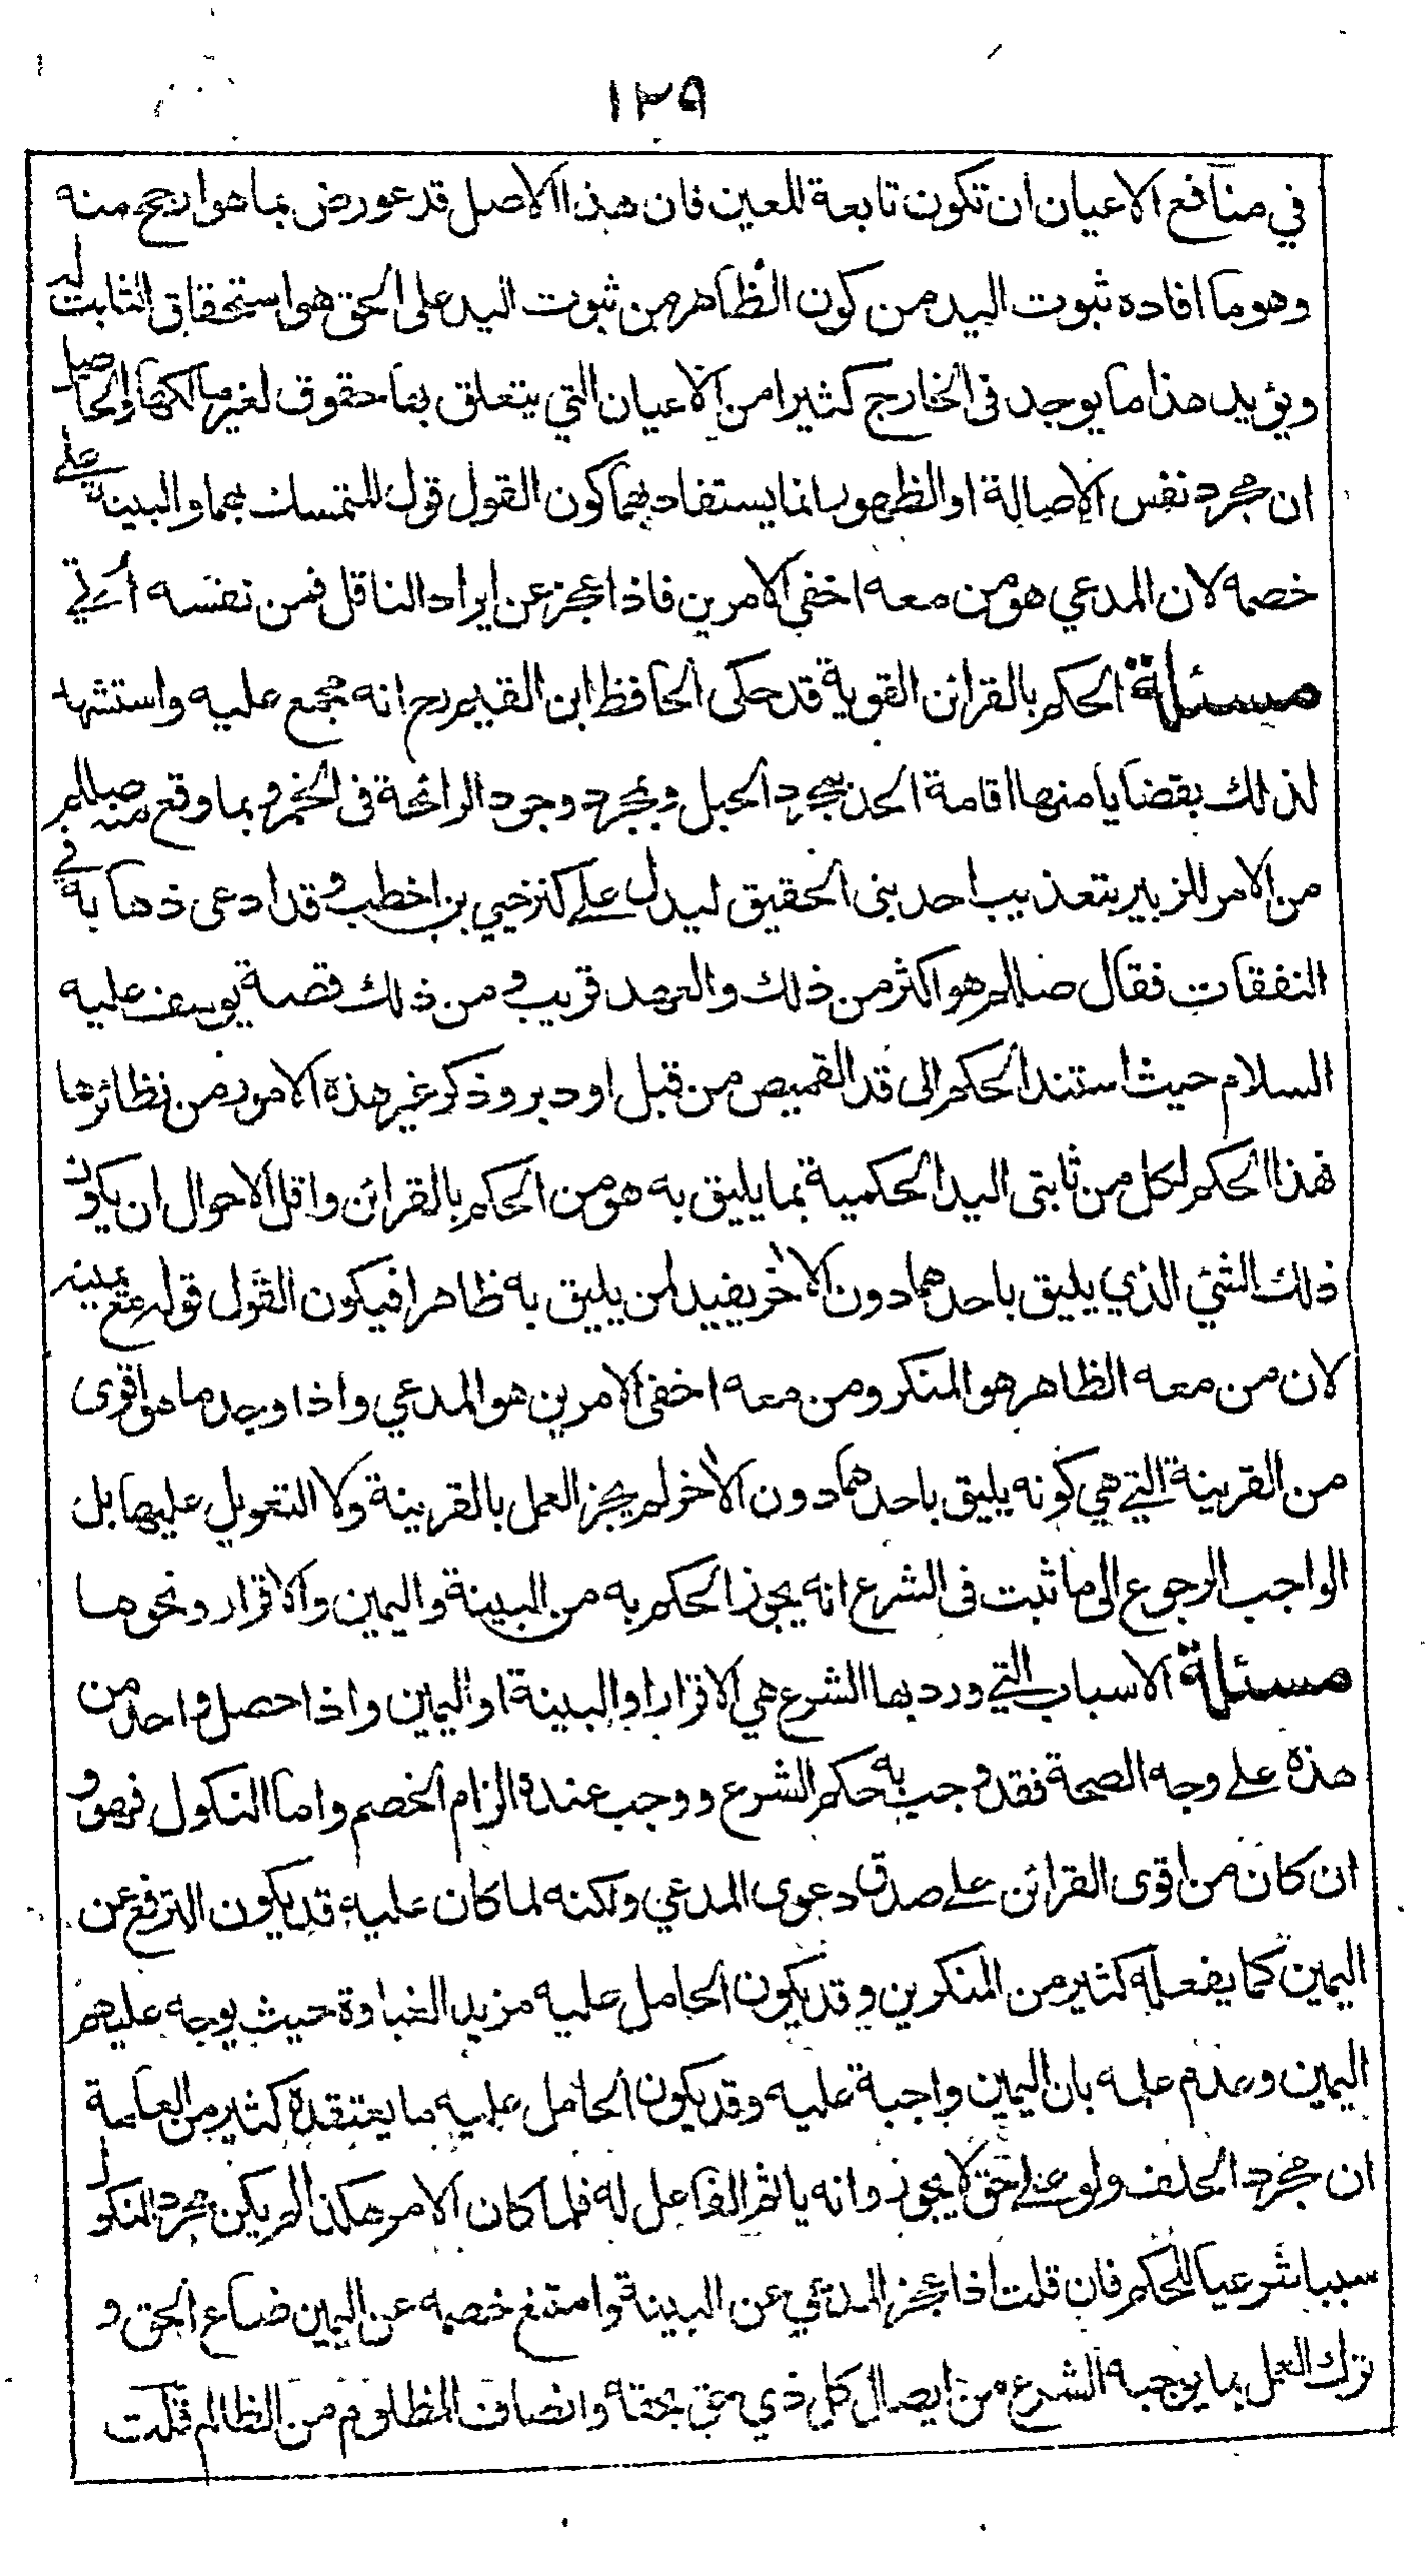 ١٣٩
في منافع الاعيان ان تكون تابعة للعين فان هذا الاصل قد عورض بما هو ارجح منه
وهو ما افاده ثبوت اليد من كون الظاهر من ثبوت اليد على الحق هو استحقاق الثابت له
ويؤيد هذا ما يوجد فى الخارج كثيرا من الاعيان التي يتعلق بها حقوق لغير مالكها والحاصل
ان مجرد نفس الاصالة او الظهور انما يستفاد بهما كون القول قول المتمسك بهما والبينة على
خصمه لان المدعي هو من معه اخفى الامرين فاذا عجز عن ايراد الناقل فمن نفسه اُتي
مسئلة الحكم بالقرائن القوية قد حكى الحافظ ابن القيم رح انه مجمع عليه واستشهد
لذلك بقضايا منها اقامة الحد بمجرد الحبل وبمجرد وجود الرائحة فى الخمر وبما وقع منه صللم
من الامر للزبير بتعذيب احد بنى الحقيق ليدل على كنز حيي بن اخطب وقد ادعى ذهابه في
النفقات فقال صللم هو اكثر من ذلك والعهد قريب ومن ذلك قصة يوسف عليه
السلام حيث استند الحكم الى قد القميص من قبل او دبر وذكر غير هذه الامور من نظائرها
فهذا الحكم لكل من ثابتى اليد الحكمية بما يليق به هو من الحكم بالقرائن واقل الاحوال ان يكون
ذلك الشئ الذي يليق باحدهما دون الاخر يفيد لمن يليق به ظاهرا فيكون القول قوله مع يمينه
لان من معه الظاهر هو المنكر ومن معه اخفى الامرين هو المدعي واذا وجد ما هو اقوى
من القرينة التي هي كونه يليق باحدهما دون الاخر لم يجز العمل بالقرينة ولا التعويل عليها بل
الواجب الرجوع الى ما ثبت فى الشرع انه يجوز الحكم به من البينة واليمين والاقرار ونحوها
مسئلة الاسباب التي ورد بها الشرع هي الاقرار او البينة او اليمين واذا حصل واحد من
هذه على وجه الصحة فقد وجب به حكم الشرع ووجب عنده الزام الخصم واما النكول فهو و
ان كان من اقوى القرائن على صدق دعوى المدعي ولكنه لما كان عليه قد يكون الترفع عن
اليمين كما يفعله كثير من المنكرين وقد يكون الحامل عليه مزيد الغباوة حيث يوجه عليهم
اليمين وعدم علمه بان اليمين واجبة عليه وقد يكون الحامل عليه ما يعتقده كثير من العامة
ان مجرد الحلف ولو على حق لا يجوز وانه ياثم الفاعل له فلما كان الامر هكذا لم يكن مجرد النكول
سببا شرعيا للحكم فان قلت اذا عجز المدعي عن البينة وامتنع خصمه عن اليمين ضاع الحق و
ترك العمل بما يوجبه الشرع من ايصال كل ذي حق بحقه وانصاف المظلوم من الظالم قلت